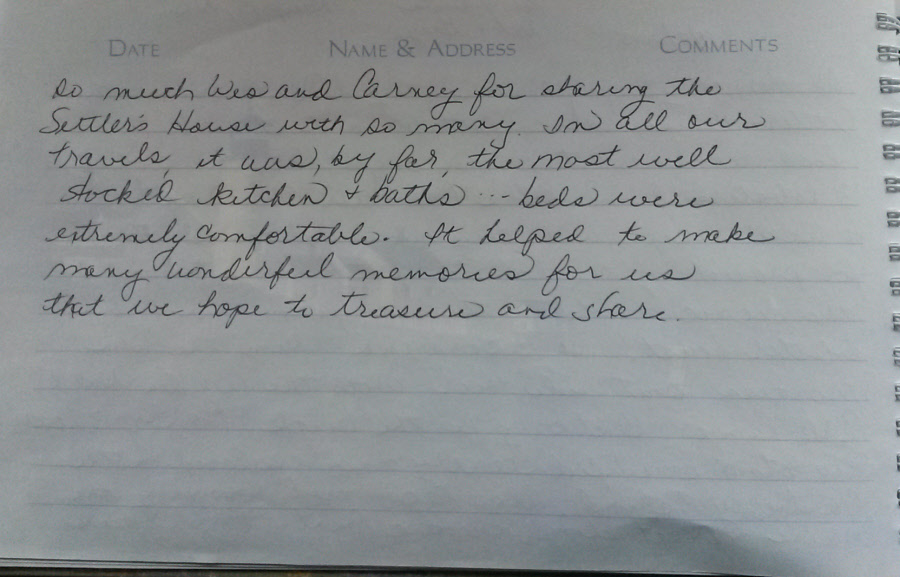 DATE NAME & ADDRESS COMMENTS
so much Wes and Carney for sharing the
Settler's House with so many. In all our
travels, it was, by far, the most well
stocked kitchen & baths ... beds were
extremely comfortable. It helped to make
many wonderful memories for us
that we hope to treasure and share.